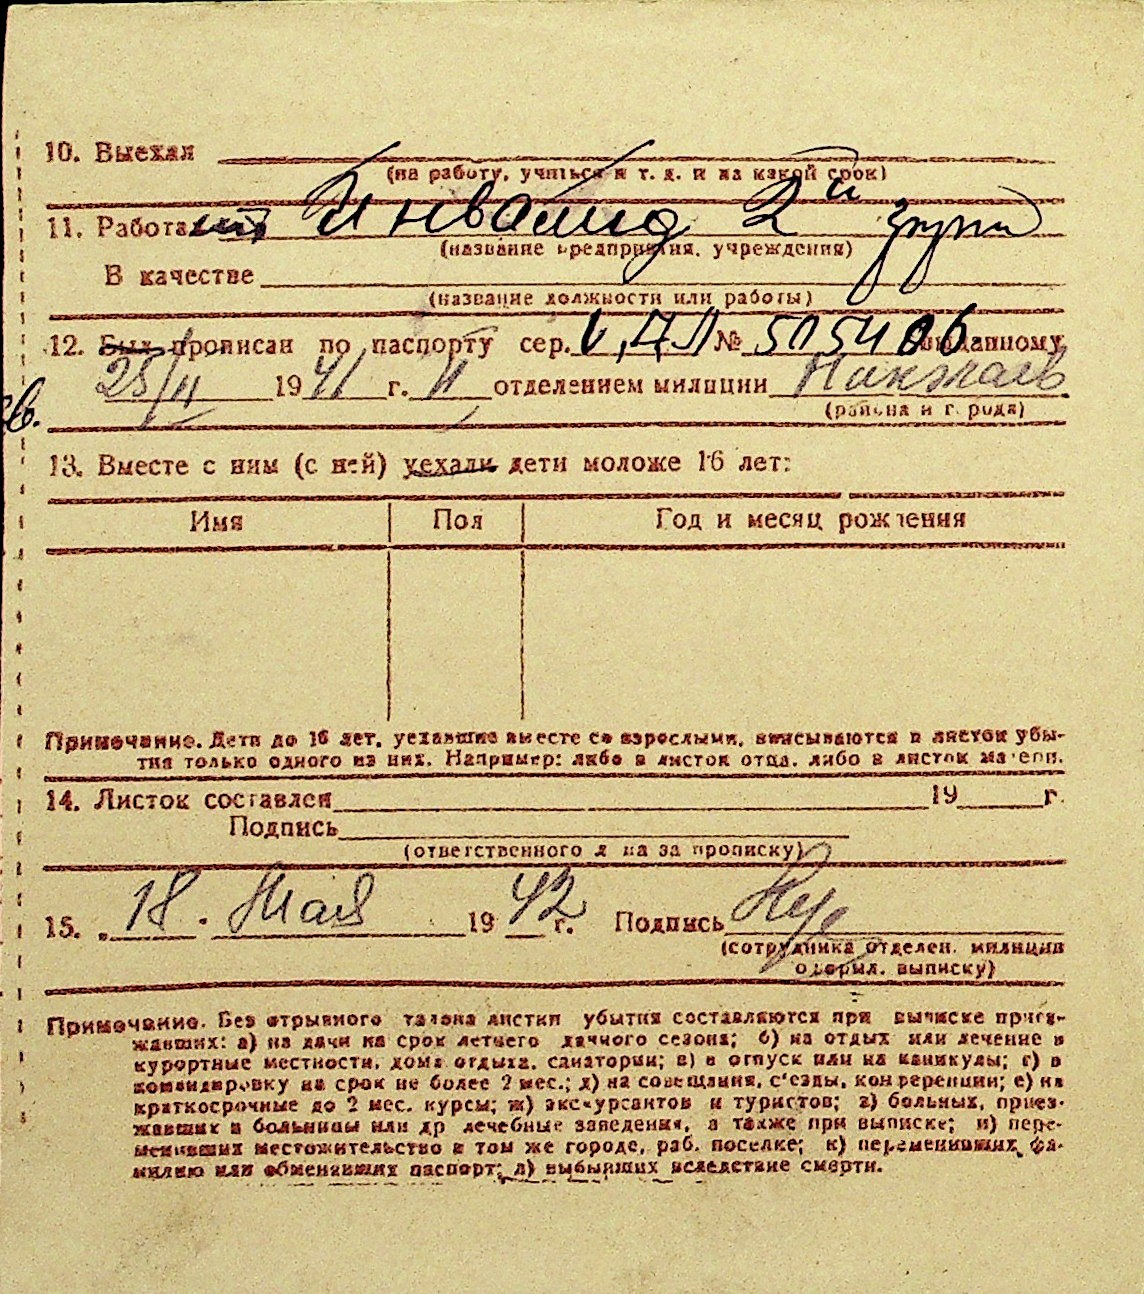 10. Выехал
(на работу, учиться и т. д. и на какой срок)
11. Работает Инвалид 2й групп
(название предприятия, учреждения)
В качестве
(название должности или работы)
12. Был прописан по паспорту сер. № 505406 выданному
25/II 1941 г. II отделением милиции Николаев
(района и города)
13. Вместе с ним (с ней) уехали дети моложе 16 лет:
Имя Пол Год и месяц рождения
Примечание. Дети до 16 лет, уехавшие вместе со взрослыми, вписываются в листок убы-
тия только одного из них. Например: либо в листок отца, либо в листок матери.
14. Листок составлен 19 г.
Подпись
(ответственного л на за прописку)
15. „ 18. Мая 1942 г. Подпись
(сотрудника отделен. милиции
оформл. выписку)
Примечание. Без отрывного талона листки убытия составляются при выписке приез-
жавших: а) на дачи на срок летнего дачного сезона; б) на отдых или лечение в
курортные местности, дома отдыха, санатории; в) в отпуск или на каникулы; г) в
командировку на срок не более 2 мес.; д) на совещания, с'езды, конференции; е) на
краткосрочные до 2 мес. курсы; ж) экскурсантов и туристов; з) больных, приез-
жавших в больницы или др лечебные заведения, а также при выписке; и) пере-
менивших местожительство в том же городе, раб. поселке; к) переменивших фа-
милию или обменявших паспорт; л) выбывших вследствие смерти.